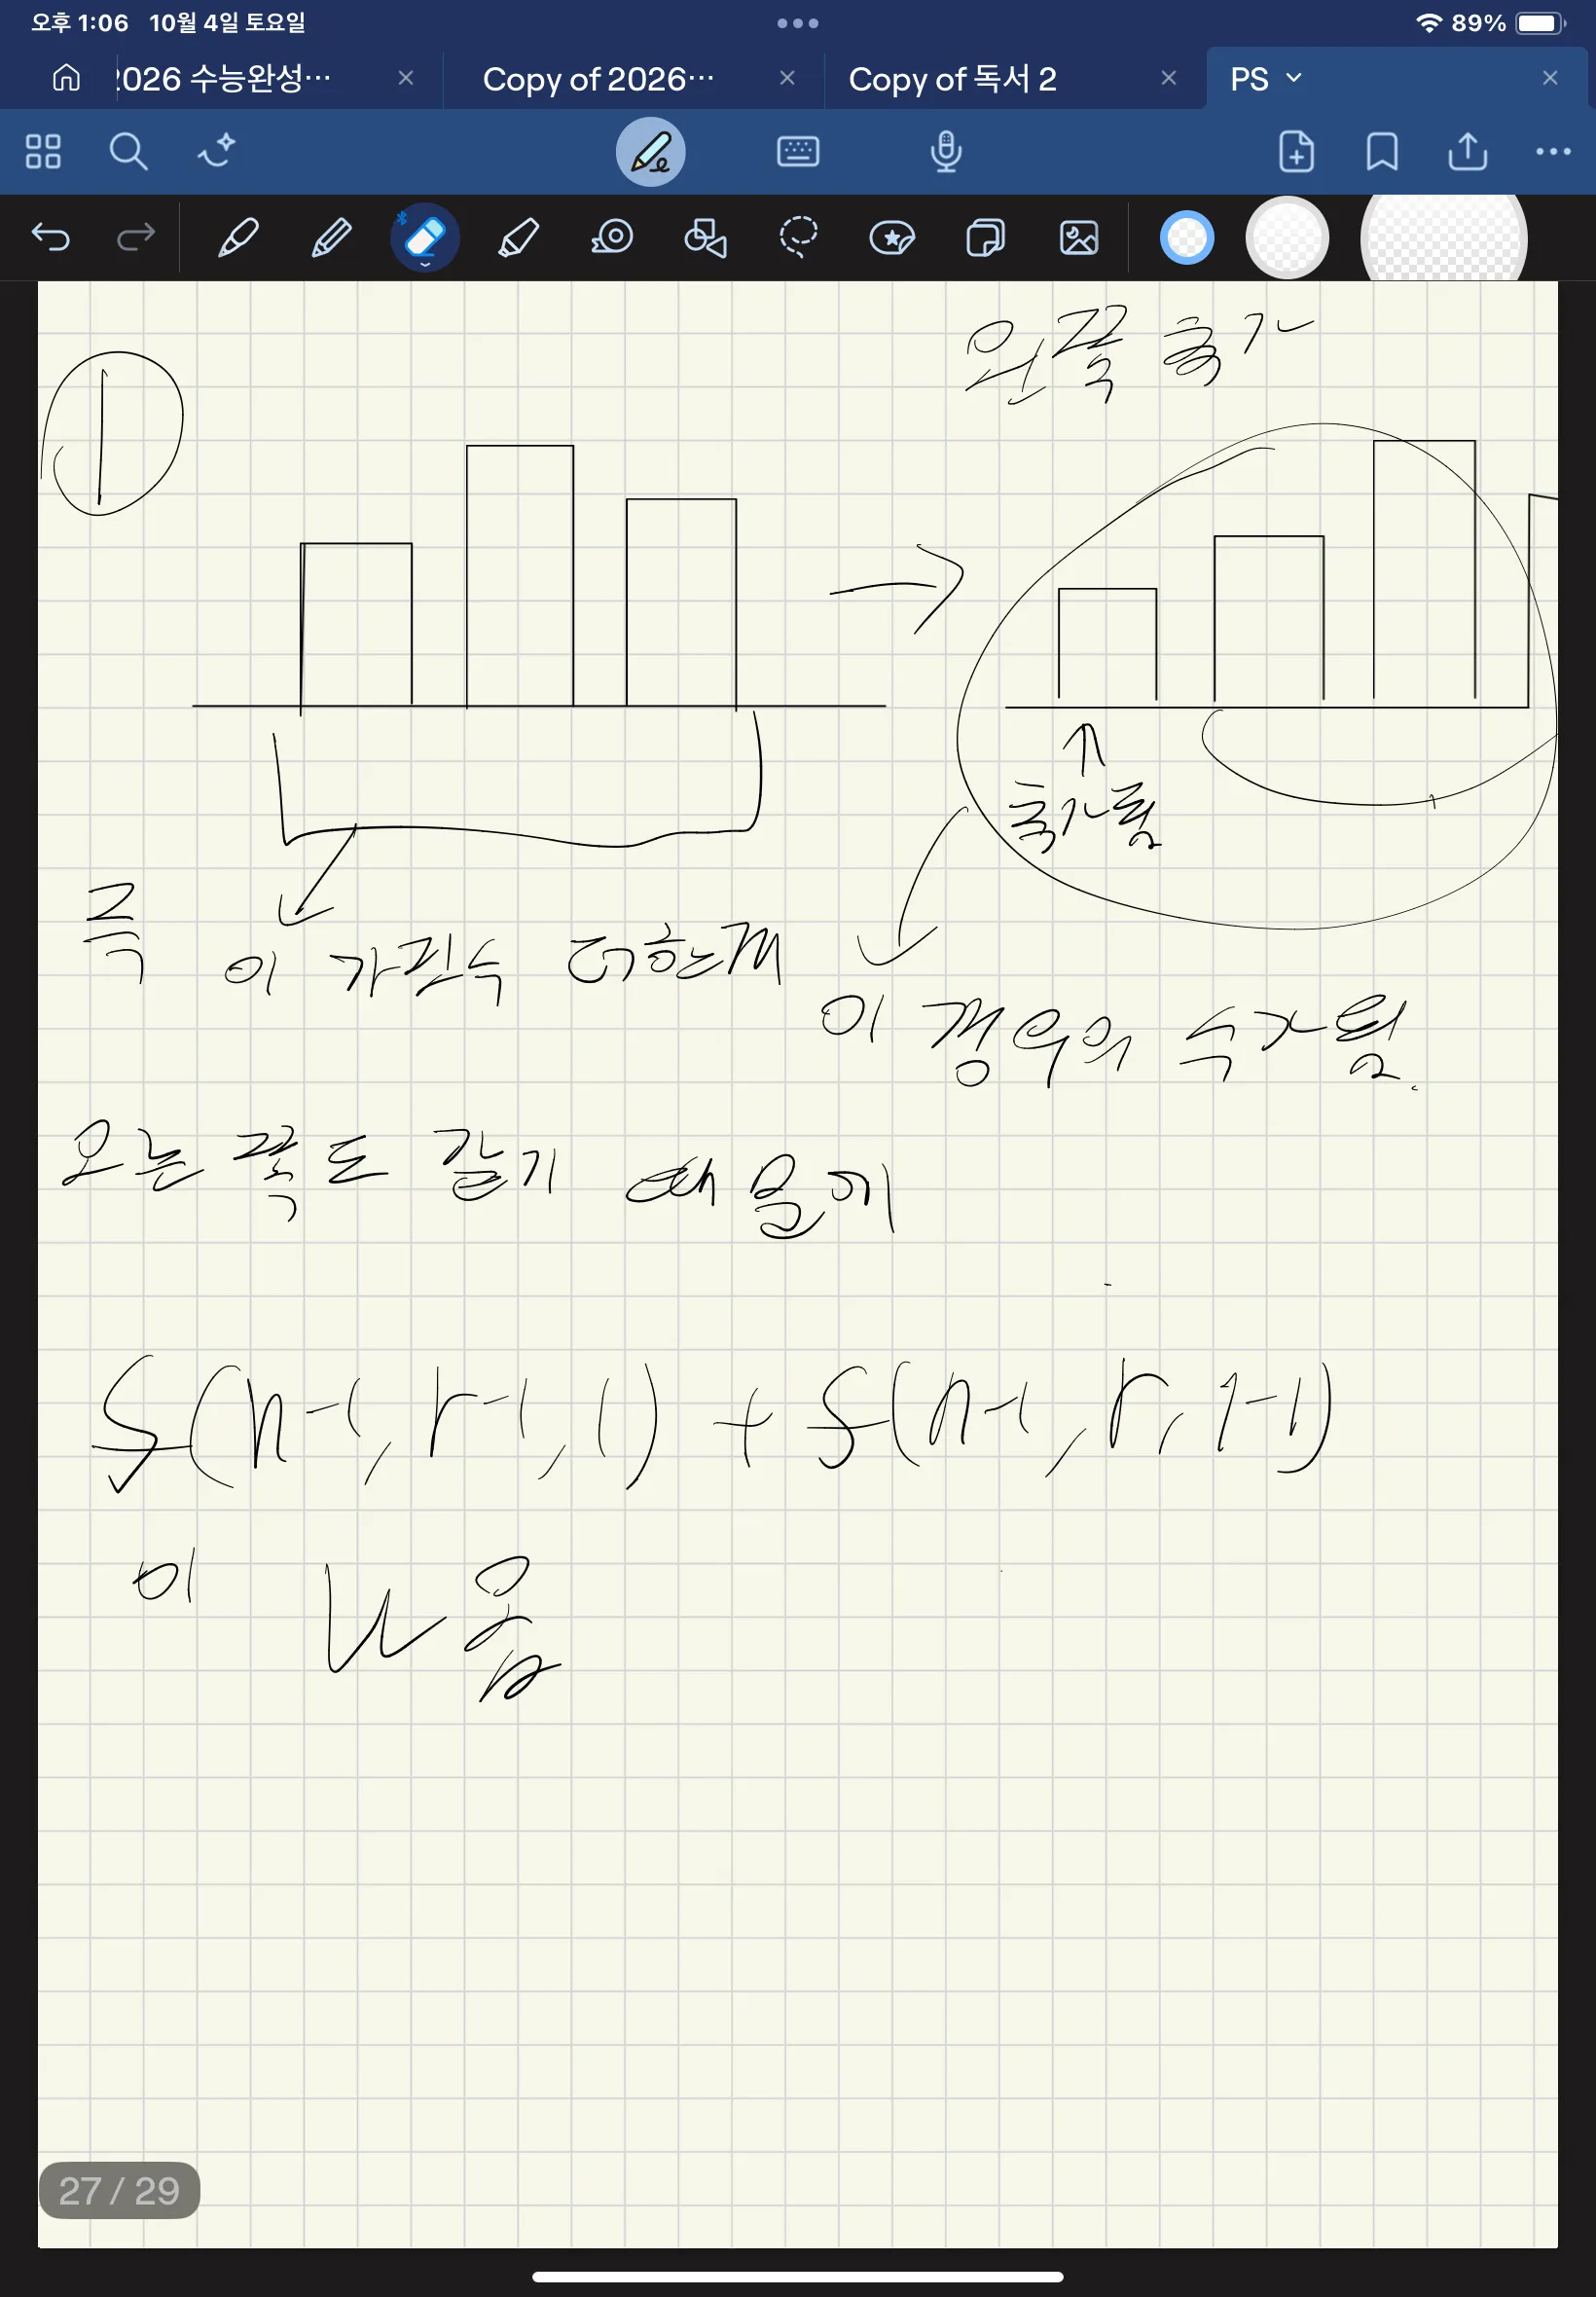 오후 1:06 10월 4일 토요일
89%
2026 수능완성…
Copy of 2026…
Copy of 독서 2
PS
왼쪽 추가
①
추가됨
즉 이 가짓수 더한게
이 경우의 수가 됨.
오른쪽도 같기 때문에
f(n-1, r-1, l) + f(n-1, r, l-1)
이 나옴
27 / 29